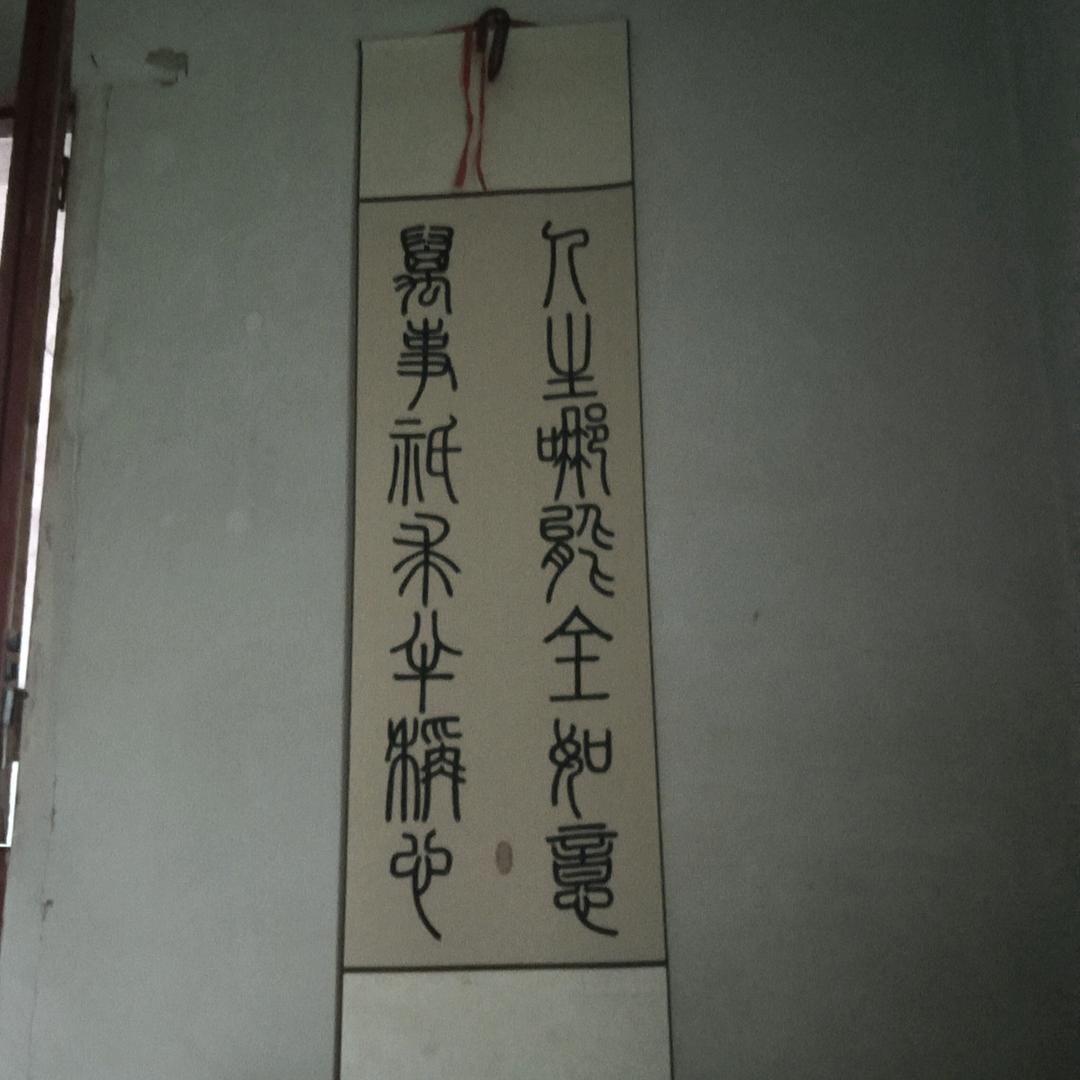 人生哪能全如意
萬事祇求半稱心